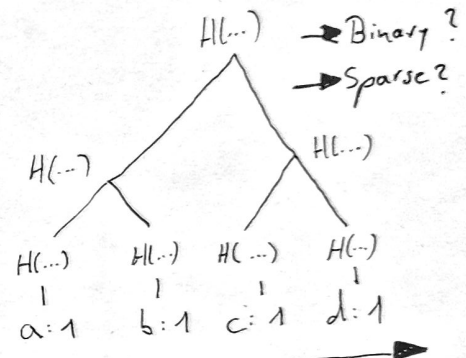 H(...) → Binary?
→ Sparse?
H(...) H(...)
H(...) H(...) H(...) H(...)
a:1 b:1 c:1 d:1